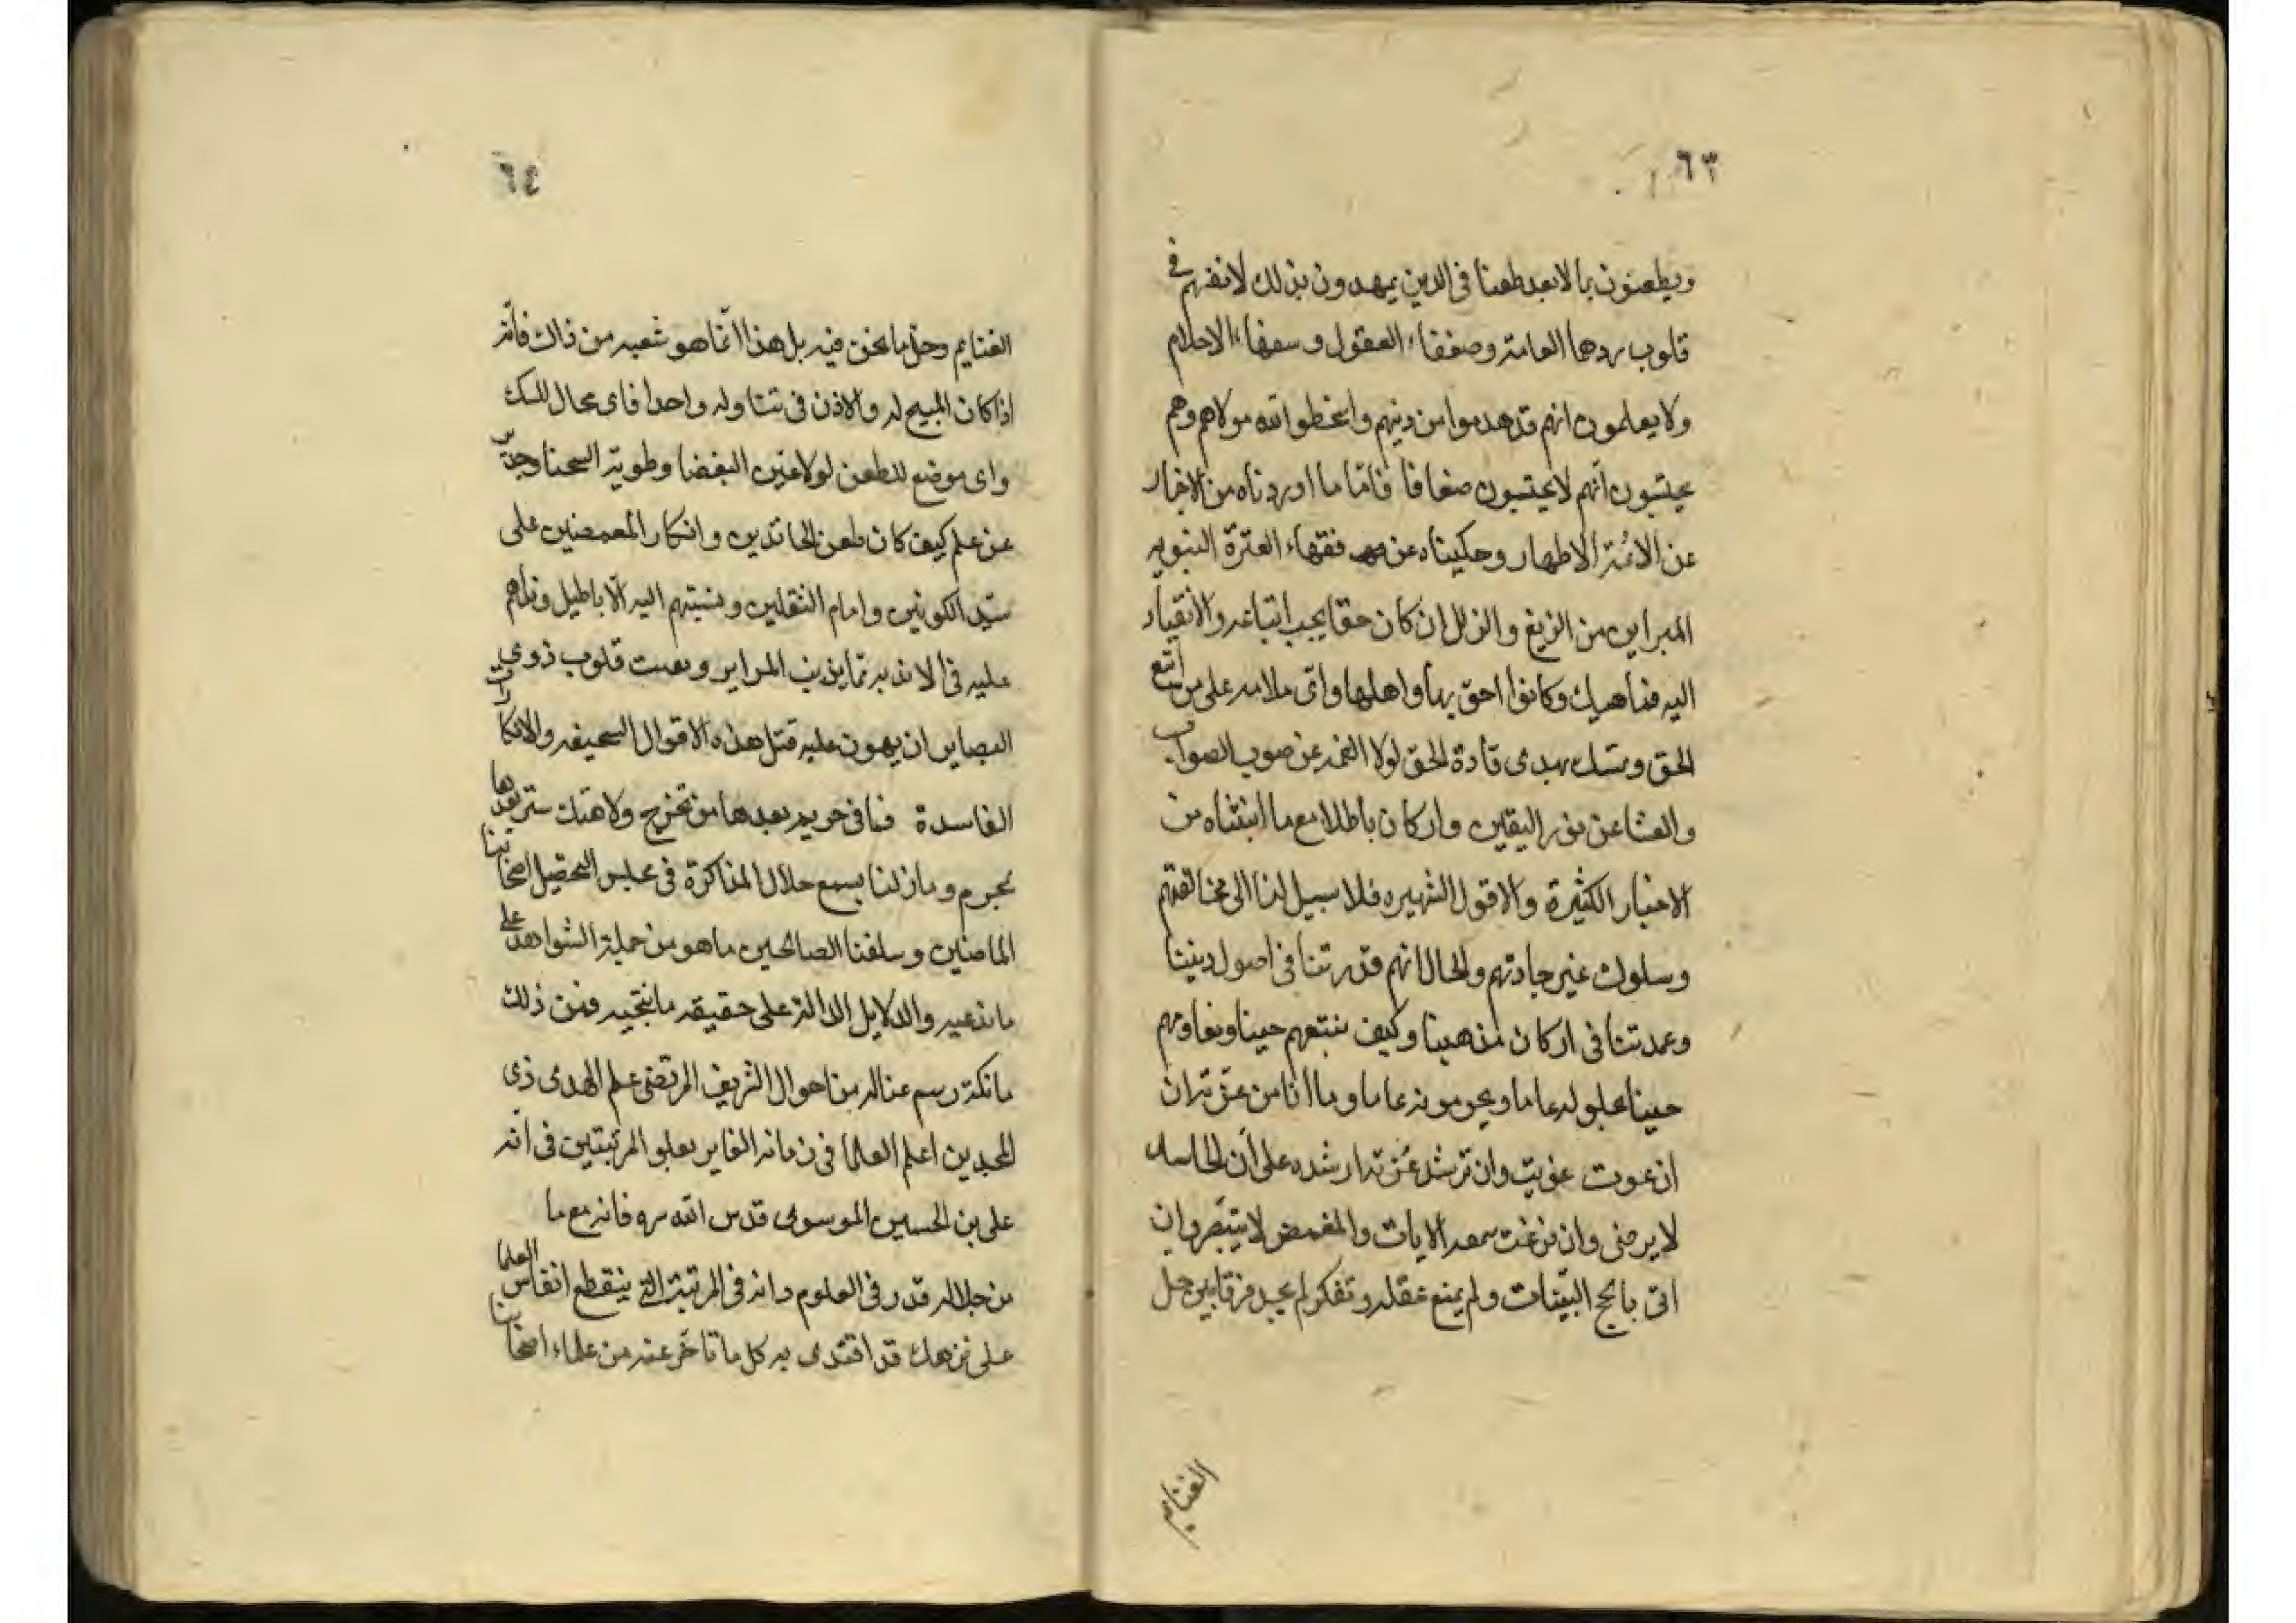 ٦٣
ويطعنون بما لا يعد طعنا في الدين يمهدون بذلك لانفسهم في
قلوب العامة وضعفاء العقول وسفهاء الاحلام
ولا يعلمون انهم قد هدموا من دينهم واسخطوا الله مولاهم وهم
يحتسبون انهم لا يحتسبون ضعافا فاما ما اوردناه من الاخبار
عن الائمة الاطهار وحكيناه عن فقهاء العترة النبويه
المبراين من الزيغ والزلل ان كان حقا يجب اتباعه والانقياد
اليه فناهيك وكانوا احق بها واهلها واى ملامه على من اتبع
الحق وتمسك بهدى قادة الحق لولا عن صوب الصواب
والعشا عن نور اليقين وان كان باطلا مع ما اثبتناه من
الاخبار الكثيرة والاقول الشهيره فلا سبيل لنا الى مخالفتهم
وسلوك غير جادتهم والحال انهم قدوتنا في اصول ديننا
وعمدتنا في اركان مذهبنا وكيف نتبعهم حينا
حينا عاما ويحرمونه عاما وما انا من غزية ان
ان غوت غويت وان ترشد غزية ارشد على ان الحاسد
لا يرضى وان سمعه الايات والمغمض لا يتبصر وان
اتى البينات ولم يمنع عقله وتفكر لم يجد فرقا بين حل
الغنايم
٦٤
الغنايم وحل ما نحن فيه بل هذا انما هو شعبه من ذاك فانه
اذا كان المبيح له والاذن في تناوله واحدا فاى مجال للشك
واى موضع للطعن لولا عين البغضا وطوية الشحنا
عن علم كيف كان طعن الحاقدين وانكار المغمضين على
سيد الكونين وامام الثقلين ونسبتهم اليه الاباطيل
عليه في المراير قلوب ذوي
البصاير ان يهون عليه مثل هذه الاقوال السخيفه والانكارات
الفاسدة فما في بعدها من تحرج ولا هتك ستر بعدها
بمجرم وما زلنا نسمع خلال المذاكرة في مجلس التحصيل اصحابنا
الماضين وسلفنا الصالحين ما هو من جملة الشواهد على
ما ندعيه والدلايل الدالة على حقيقه ما ننتحيه فمن ذلك
ما من احوال الشريف المرتضى علم الهدى ذى
المجدين اعلم العلما في زمانه بعلو المرتبتين في انه
على بن الحسين الموسوى قدس الله سره فانه مع ما
من جلالة قدره في العلوم وانه في المرتبة التي ينقطع انفاس العلما
على قد اقتدى به كل ما تاخر عنه من علماء اصحابنا